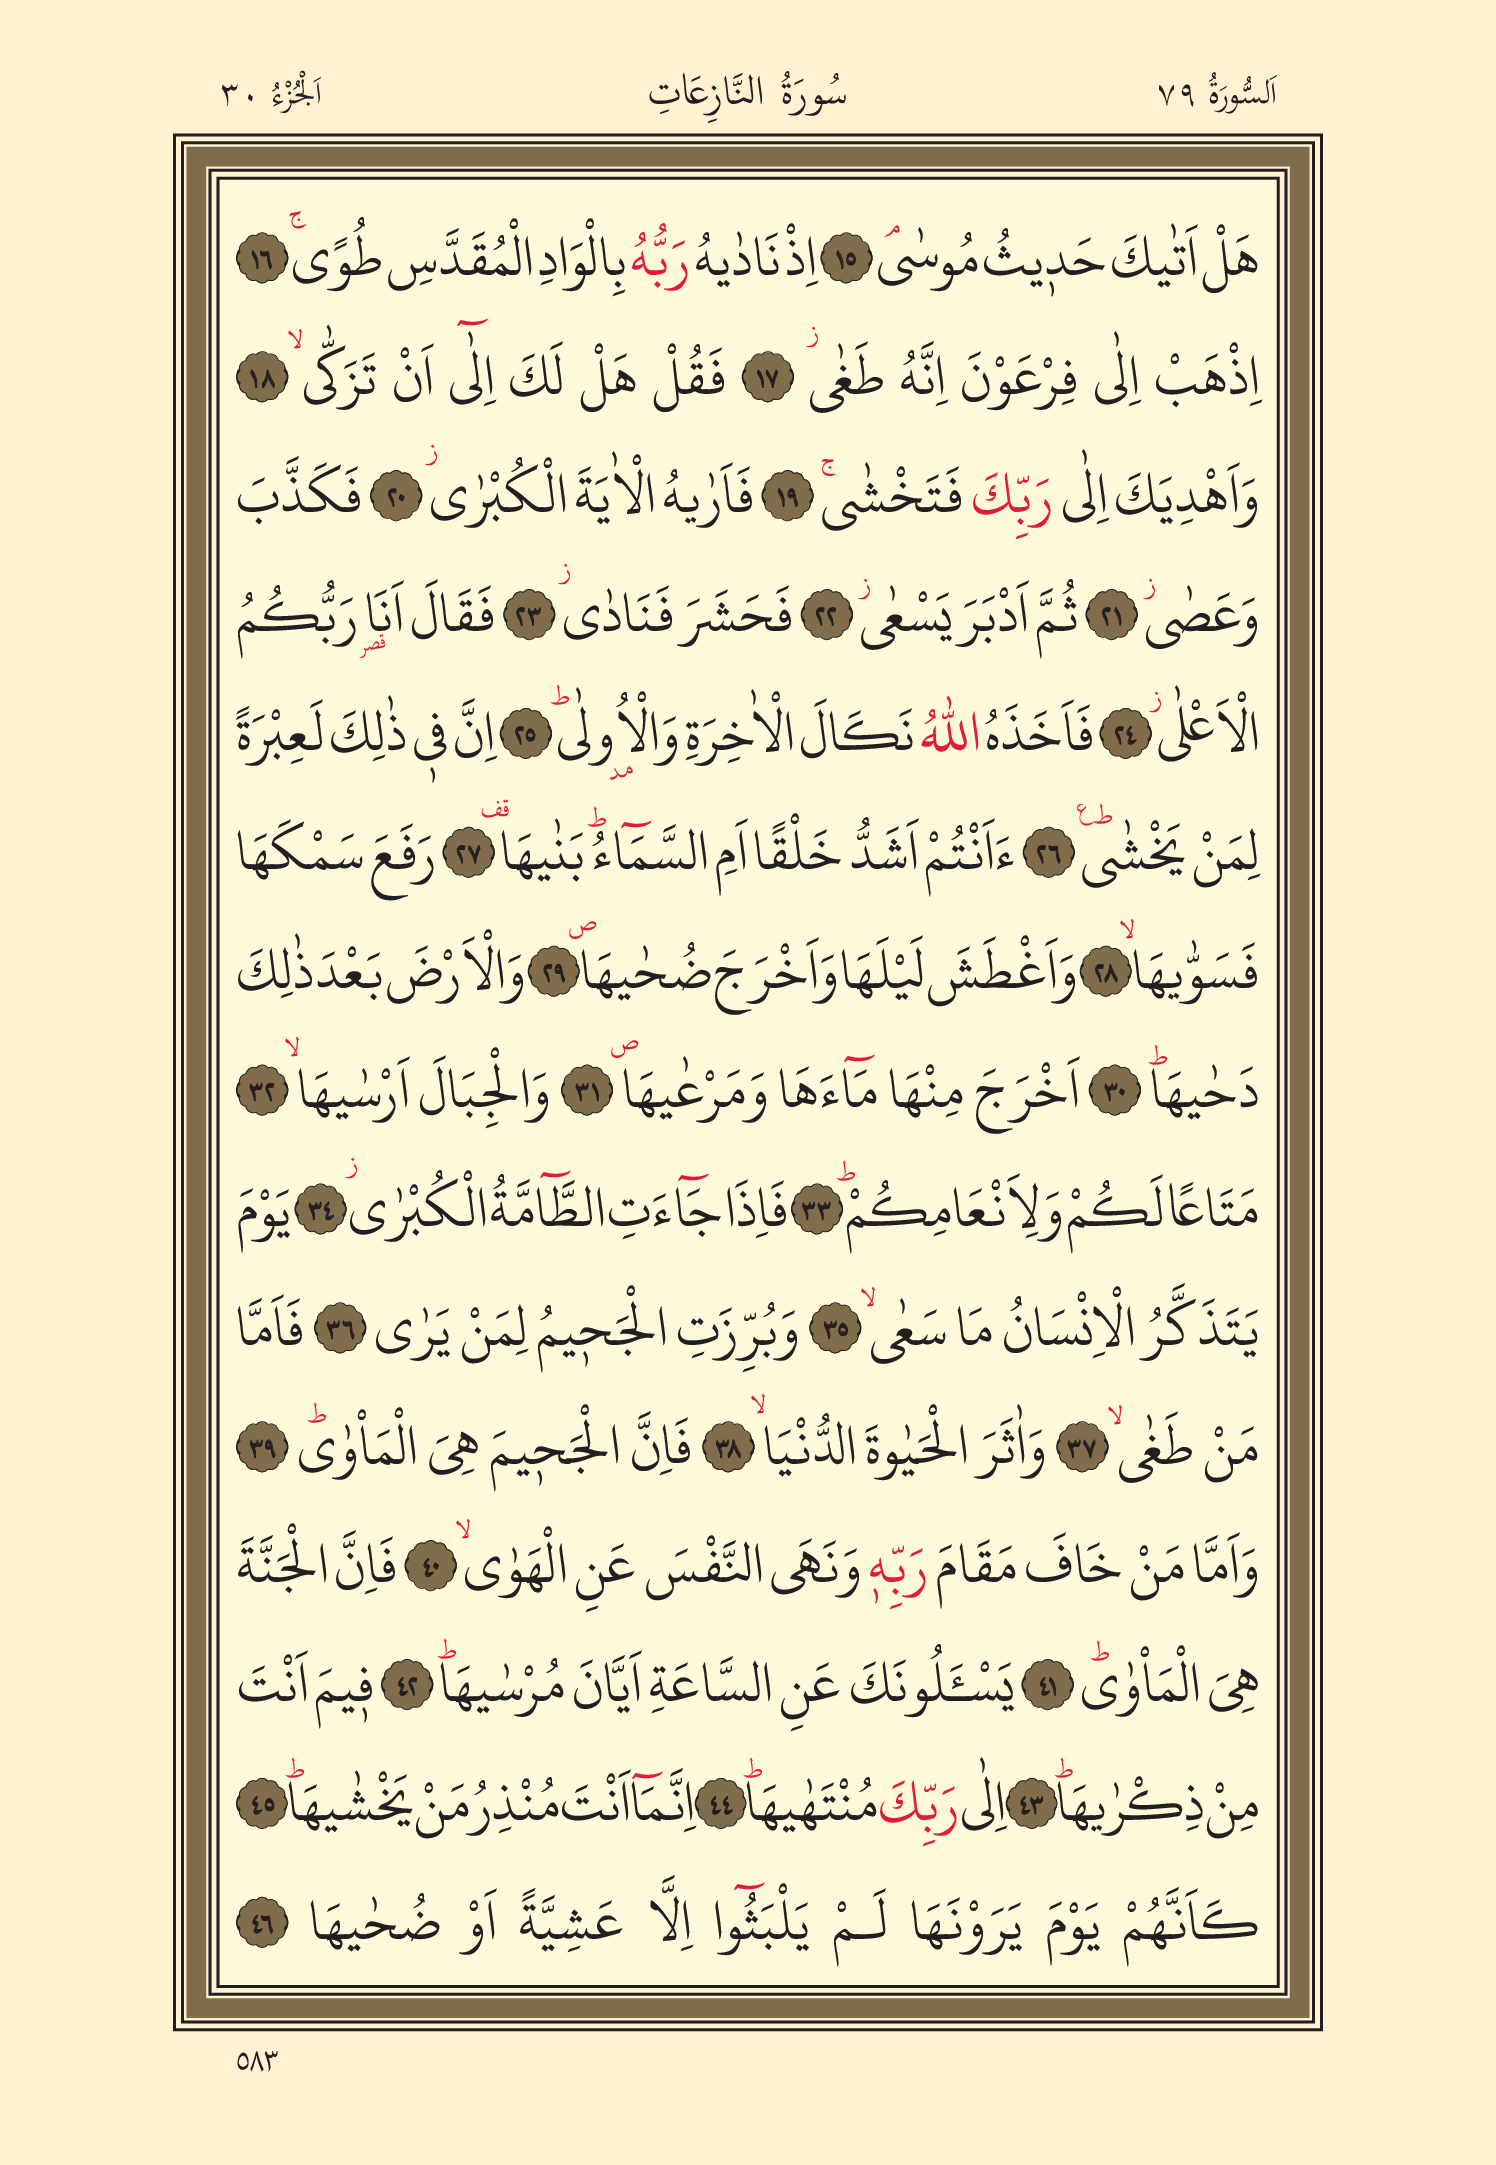 اَلسُّورَةُ ٧٩ سُورَةُ النَّازِعَاتِ اَلْجُزْءُ ٣٠
هَلْ اَتٰيكَ حَد۪يثُ مُوسٰىۢ ﴿١٥﴾ اِذْ نَادٰيهُ رَبُّهُ بِالْوَادِ الْمُقَدَّسِ طُوًىۚ ﴿١٦﴾
اِذْهَبْ اِلٰى فِرْعَوْنَ اِنَّهُ طَغٰىۘ ﴿١٧﴾ فَقُلْ هَلْ لَكَ اِلٰٓى اَنْ تَزَكّٰىۙ ﴿١٨﴾
وَاَهْدِيَكَ اِلٰى رَبِّكَ فَتَخْشٰىۚ ﴿١٩﴾ فَاَرٰيهُ الْاٰيَةَ الْكُبْرٰىۘ ﴿٢٠﴾ فَكَذَّبَ
وَعَصٰىۘ ﴿٢١﴾ ثُمَّ اَدْبَرَ يَسْعٰىۘ ﴿٢٢﴾ فَحَشَرَ فَنَادٰىۘ ﴿٢٣﴾ فَقَالَ اَنَا۬ رَبُّكُمُ
قصر
الْاَعْلٰىۘ ﴿٢٤﴾ فَاَخَذَهُ اللّٰهُ نَكَالَ الْاٰخِرَةِ وَالْاُولٰىۜ ﴿٢٥﴾ اِنَّ ف۪ي ذٰلِكَ لَعِبْرَةً
مد
لِمَنْ يَخْشٰىۜ ﴿٢٦﴾ ءَاَنْتُمْ اَشَدُّ خَلْقًا اَمِ السَّمَٓاءُۜ بَنٰيهَا۠ ﴿٢٧﴾ رَفَعَ سَمْكَهَا
فَسَوّٰيهَاۙ ﴿٢٨﴾ وَاَغْطَشَ لَيْلَهَا وَاَخْرَجَ ضُحٰيهَاۖ ﴿٢٩﴾ وَالْاَرْضَ بَعْدَ ذٰلِكَ
دَحٰيهَاۜ ﴿٣٠﴾ اَخْرَجَ مِنْهَا مَٓاءَهَا وَمَرْعٰيهَاۖ ﴿٣١﴾ وَالْجِبَالَ اَرْسٰيهَاۙ ﴿٣٢﴾
مَتَاعًا لَكُمْ وَلِاَنْعَامِكُمْۜ ﴿٣٣﴾ فَاِذَا جَٓاءَتِ الطَّٓامَّةُ الْكُبْرٰىۘ ﴿٣٤﴾ يَوْمَ
يَتَذَكَّرُ الْاِنْسَانُ مَا سَعٰىۙ ﴿٣٥﴾ وَبُرِّزَتِ الْجَح۪يمُ لِمَنْ يَرٰى ﴿٣٦﴾ فَاَمَّا
مَنْ طَغٰىۙ ﴿٣٧﴾ وَاٰثَرَ الْحَيٰوةَ الدُّنْيَاۙ ﴿٣٨﴾ فَاِنَّ الْجَح۪يمَ هِيَ الْمَاْوٰىۜ ﴿٣٩﴾
وَاَمَّا مَنْ خَافَ مَقَامَ رَبِّه۪ وَنَهَى النَّفْسَ عَنِ الْهَوٰىۙ ﴿٤٠﴾ فَاِنَّ الْجَنَّةَ
هِيَ الْمَاْوٰىۜ ﴿٤١﴾ يَسْـَٔلُونَكَ عَنِ السَّاعَةِ اَيَّانَ مُرْسٰيهَاۜ ﴿٤٢﴾ ف۪يمَ اَنْتَ
مِنْ ذِكْرٰيهَاۜ ﴿٤٣﴾ اِلٰى رَبِّكَ مُنْتَهٰيهَاۜ ﴿٤٤﴾ اِنَّمَٓا اَنْتَ مُنْذِرُ مَنْ يَخْشٰيهَاۜ ﴿٤٥﴾
كَاَنَّهُمْ يَوْمَ يَرَوْنَهَا لَمْ يَلْبَثُٓوا اِلَّا عَشِيَّةً اَوْ ضُحٰيهَا ﴿٤٦﴾
٥٨٣